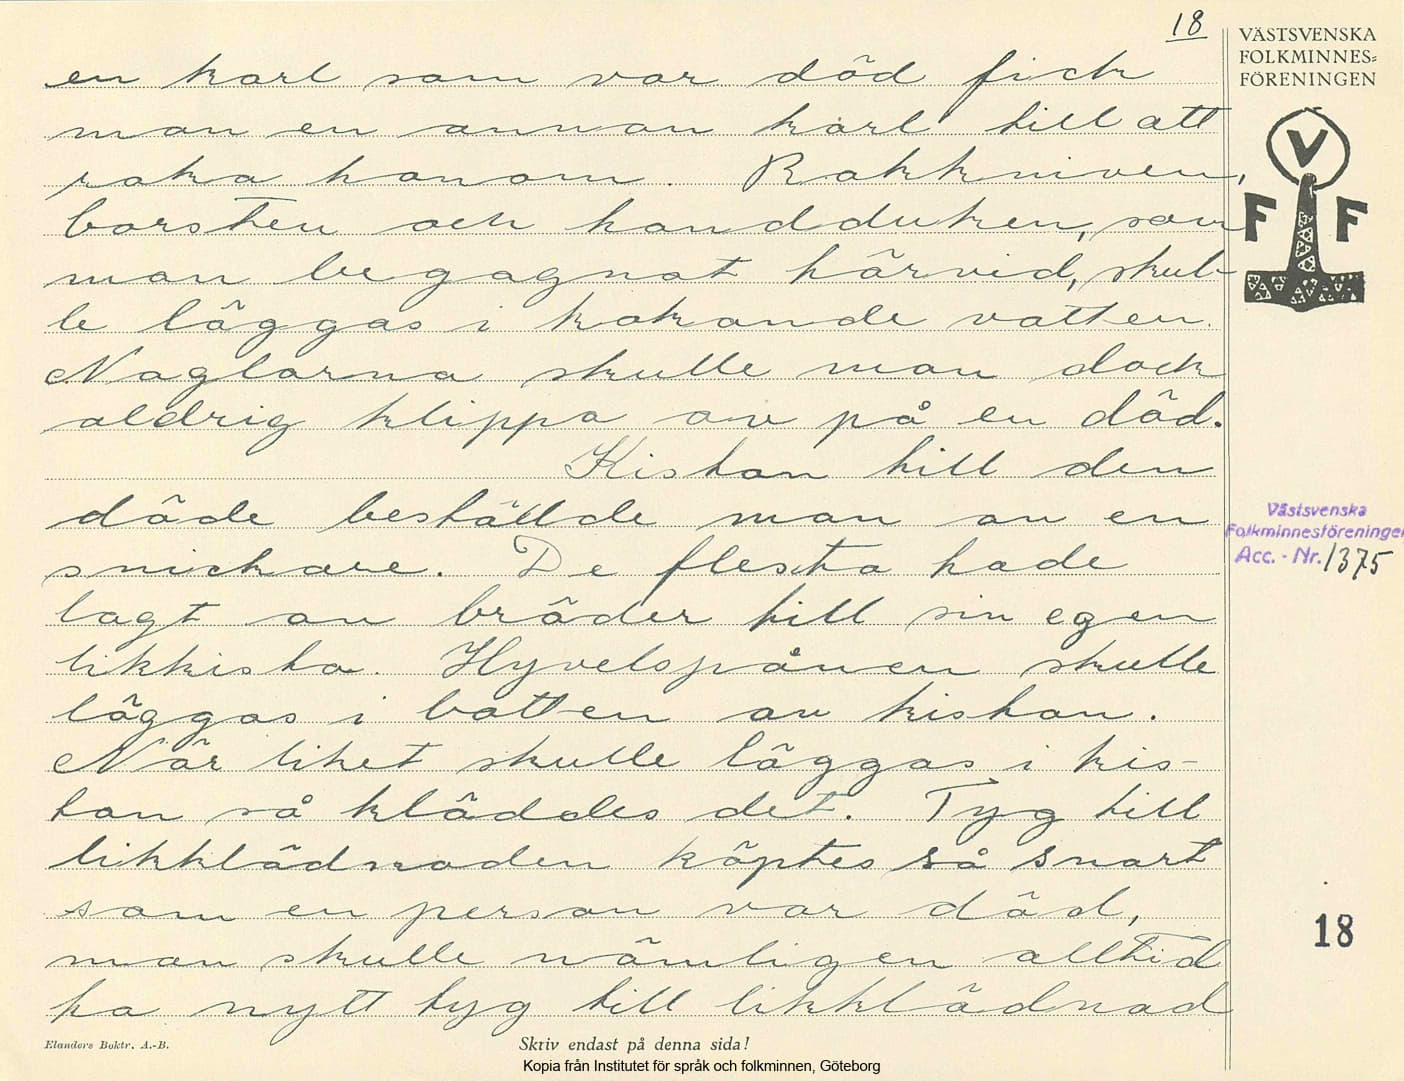 18
VÄSTSVENSKA
FOLKMINNES=
FÖRENINGEN
V
F F
en karl som var död fick
man en annan karl till att
raka honom. Rakkniven,
borsten och handduken, som
man begagnat härvid, skul-
le läggas i kokande vatten.
Naglarna skulle man dock
aldrig klippa av på en död.
Kistan till den
döde beställde man av en
snickare. De flesta hade
lagt av bräder till sin egen
likkista. Hyvelspånen skulle
läggas i botten av kistan.
När liket skulle läggas i kis-
tan så kläddes det. Tyg till
likklädnaden köptes så snart
som en person var död,
man skulle nämligen alltid
ha nytt tyg till likklädnad
Västsvenska
Folkminnesföreningen
Acc. - Nr. 1375
18
Elanders Boktr. A.-B.
Skriv endast på denna sida!
Kopia från Institutet för språk och folkminnen, Göteborg